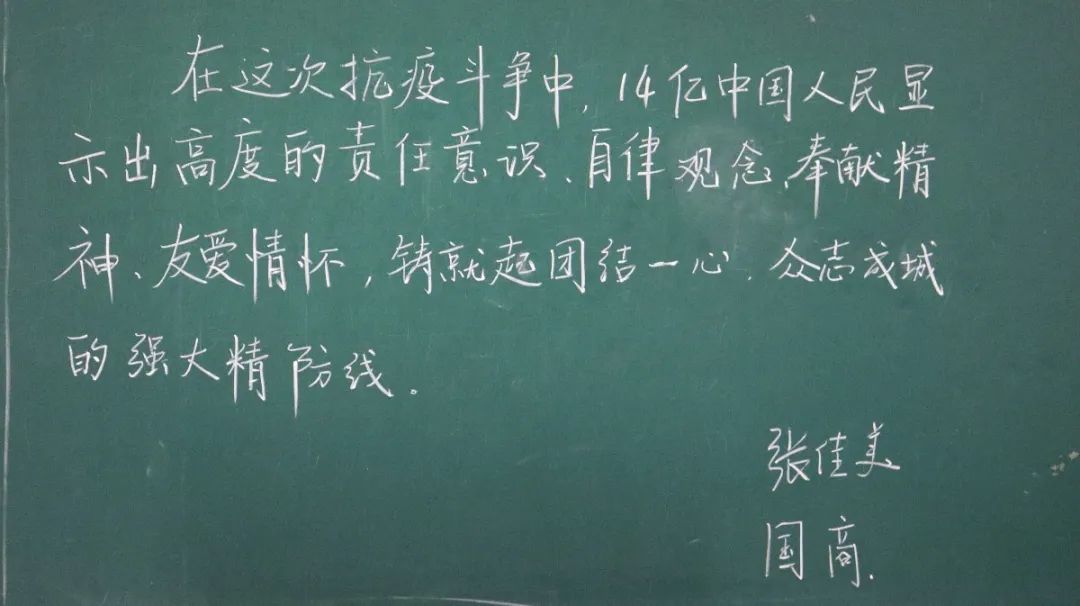 在这次抗疫斗争中,14亿中国人民显
示出高度的责任意识、自律观念、奉献精
神、友爱情怀,铸就起团结一心、众志成城
的强大精防线。
张佳美
国商.